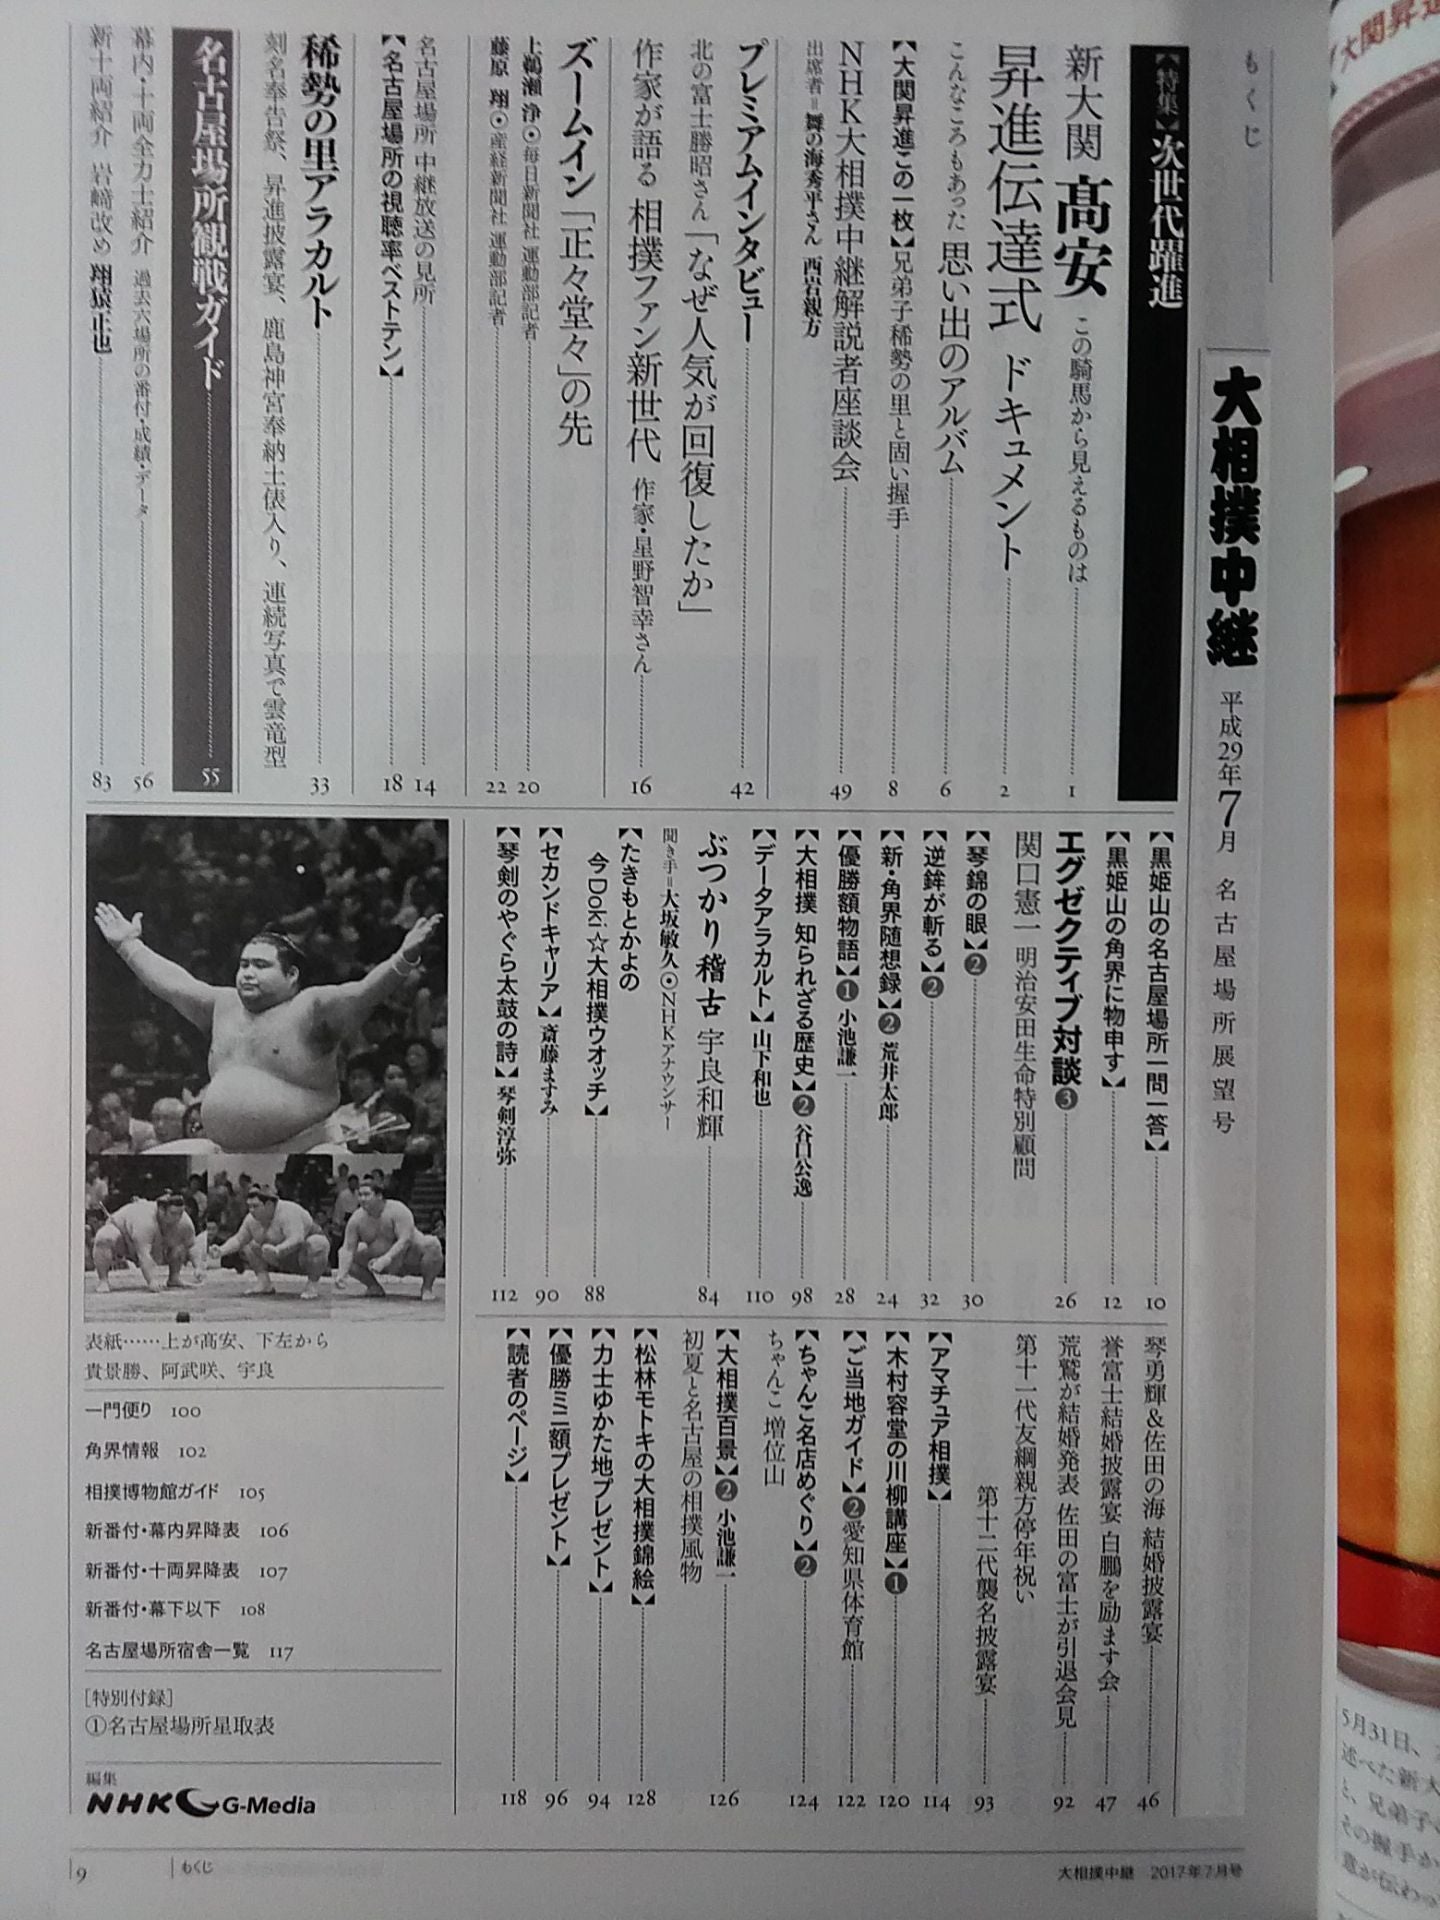 もくじ
大相撲中継 平成29年7月 名古屋場所展望号
【特集】次世代躍進
新大関 髙安 この騎馬から見えるものは 1
昇進伝達式 ドキュメント 2
こんなころもあった 思い出のアルバム 6
【大関昇進この一枚】兄弟子稀勢の里と固い握手 8
NHK大相撲中継解説者座談会 49
出席者=舞の海秀平さん 西岩親方
プレミアムインタビュー 42
北の富士勝昭さん「なぜ人気が回復したか」
作家が語る 相撲ファン新世代 作家・星野智幸さん 16
ズームイン「正々堂々」の先
上鵜瀬 浄◉毎日新聞社 運動部記者 20
藤原 翔◉産経新聞社 運動部記者 22
名古屋場所 中継放送の見所 14
【名古屋場所の視聴率ベストテン】 18
稀勢の里アラカルト 33
刻名奉告祭、昇進披露宴、鹿島神宮奉納土俵入り、連続写真で雲竜型
名古屋場所観戦ガイド 55
幕内・十両全力士紹介 過去六場所の番付・成績・データ 56
新十両紹介 岩﨑改め 翔猿正也 83
【黒姫山の名古屋場所一問一答】 10
【黒姫山の角界に物申す】 12
エグゼクティブ対談❸ 26
関口憲一 明治安田生命特別顧問
【琴錦の眼】❷ 30
【逆鉾が斬る】❷ 32
【新・角界随想録】❷ 荒井太郎 24
【優勝額物語】❶ 小池謙一 28
【大相撲 知られざる歴史】❷ 谷口公逸 98
【データアラカルト】 山下和也 110
ぶつかり稽古 宇良和輝 84
聞き手=大坂敏久◉NHKアナウンサー
【たきもとかよの
今Doki☆大相撲ウオッチ】 88
【セカンドキャリア】 斎藤ますみ 90
【琴剣のやぐら太鼓の詩】 琴剣淳弥 112
琴勇輝&佐田の海 結婚披露宴 46
誉富士結婚披露宴 白鵬を励ます会 47
荒鷲が結婚発表 佐田の富士が引退会見 92
第十一代友綱親方停年祝い
第十二代襲名披露宴 93
【アマチュア相撲】 114
【木村容堂の川柳講座】❶ 120
【ご当地ガイド】❷愛知県体育館 122
【ちゃんこ名店めぐり】❷ 124
ちゃんこ 増位山
【大相撲百景】❷ 小池謙一 126
初夏と名古屋の相撲風物
【松林モトキの大相撲錦絵】 128
【力士ゆかた地プレゼント】 94
【優勝ミニ額プレゼント】 96
【読者のページ】 118
表紙……上が髙安、下左から
貴景勝、阿武咲、宇良
一門便り 100
角界情報 102
相撲博物館ガイド 105
新番付・幕内昇降表 106
新番付・十両昇降表 107
新番付・幕下以下 108
名古屋場所宿舎一覧 117
[特別付録]
①名古屋場所星取表
編集
NHK G-Media
9 もくじ
大相撲中継 2017年7月号
大関昇進
5月31日、
述べた新大
と、兄弟子
その握手か
意が伝わっ